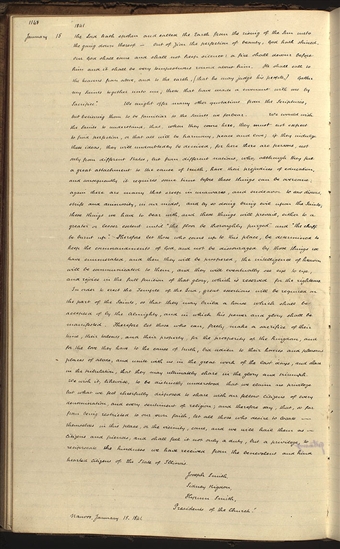 1148
1841
January 15 the Lord hath spoken and called the Earth from the rising of the Sun unto
the going down thereof — Out of Zion the perfection of beauty, God hath shined,
Our God shall come and shall not keep silence; a fire shall devour before
him and it shall be very tempestuous round about him. He shall call to
the heavens from above, and to the earth, (that he may judge his people.) Gather
my Saints together unto me; those that have made a covenant with me by
Sacrifice." We might offer many other quotations from the Scriptures,
but believing them to be familiar to the Saints we forbear. We would wish
the Saints to understand that, when they come here, they must not expect
to find perfection, or that all will be harmony, peace and love; if they indulge
these ideas, they will undoubtedly be deceived, for here there are persons, not
only from different States, but from different nations, who, although they feel
a great attachment to the cause of truth, have their prejudices of education,
and consequently it requires some time before these things can be overcome;
again there are many that creep in unawares, and endeavor to sow discord,
strife and animosity, in our midst, and by so doing bring evil upon the Saints;
these things we have to bear with, and these things will prevail, either to a
greater or lesser extent until "the floor be thoroughly purged, and "the chaff
be burnt up." Therefore let those who come up to this place, be determined to
keep the commandments of God, and not be discouraged by those things we
have enumerated and then they will be prospered, the intelligence of heaven
will be communicated to them, and they will eventually see eye to eye,
and rejoice in the full fruition of that glory, which is reserved for the righteous
In order to erect the Temple of the Lord, great exertions will be required on
the part of the Saints, so that they may build a house which shall be
accepted of by the Almighty, and in which his power and glory shall be
manifested. Therefore let those who can, freely make a sacrifice of their
time, their talents, and their property, for the prosperity of the kingdom, and
for the love they have to the cause of truth, bid adieu to their homes and pleasant
places of abode, and unite with us in the great work of the last days, and share
in the tribulation, that they may ultimately share in the glory and triumph.
We wish it, likewise, to be distinctly understood that we claim no privilege
but what we feel cheerfully disposed to share with our fellow citizens of every
denomination, and every sentiment of religion; and therefore say, that, so far
from being restricted to our own faith, let all those who desire to locate
themselves in this place, or the vicinity, come, and we will hail them as
citizens and friends, and shall feel it not only a duty, but a privilege, to
reciprocate the kindness we have received from the benevolent and kind
hearted citizens of the State of Illinois.
Joseph Smith
Sidney Rigdon,
Hyrum Smith,
Presidents of the Church."
Nauvoo, January 15. 1841.